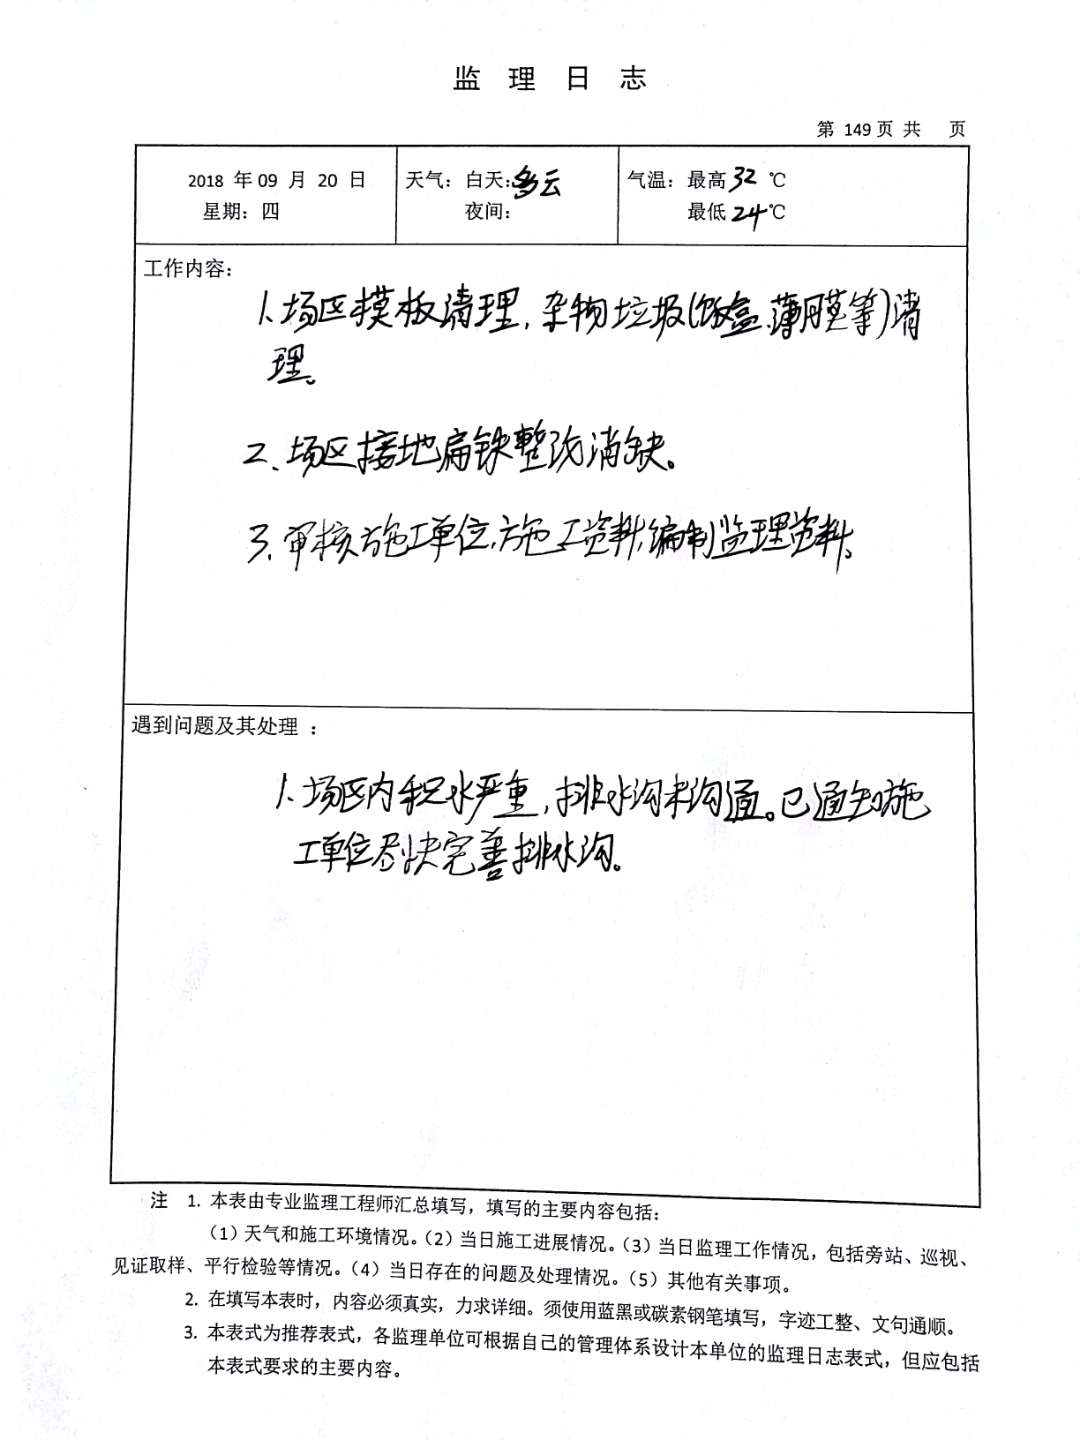 监 理 日 志
第 149 页 共 页
2018 年 09 月 20 日
星期：四
天气：白天：多云
夜间：
气温：最高 32 ℃
最低 24 ℃
工作内容：
1、场区模板清理，杂物垃圾（饭盒、薄膜等）清
理。
2、场区接地扁铁整改消缺。
3、审核施工单位施工资料，编制监理资料。
遇到问题及其处理 ：
1、场区内积水严重，排水沟未沟通。已通知施
工单位尽快完善排水沟。
注 1. 本表由专业监理工程师汇总填写，填写的主要内容包括：
（1）天气和施工环境情况。（2）当日施工进展情况。（3）当日监理工作情况，包括旁站、巡视、
见证取样、平行检验等情况。（4）当日存在的问题及处理情况。（5）其他有关事项。
2. 在填写本表时，内容必须真实，力求详细。须使用蓝黑或碳素钢笔填写，字迹工整、文句通顺。
3. 本表式为推荐表式，各监理单位可根据自己的管理体系设计本单位的监理日志表式，但应包括
本表式要求的主要内容。